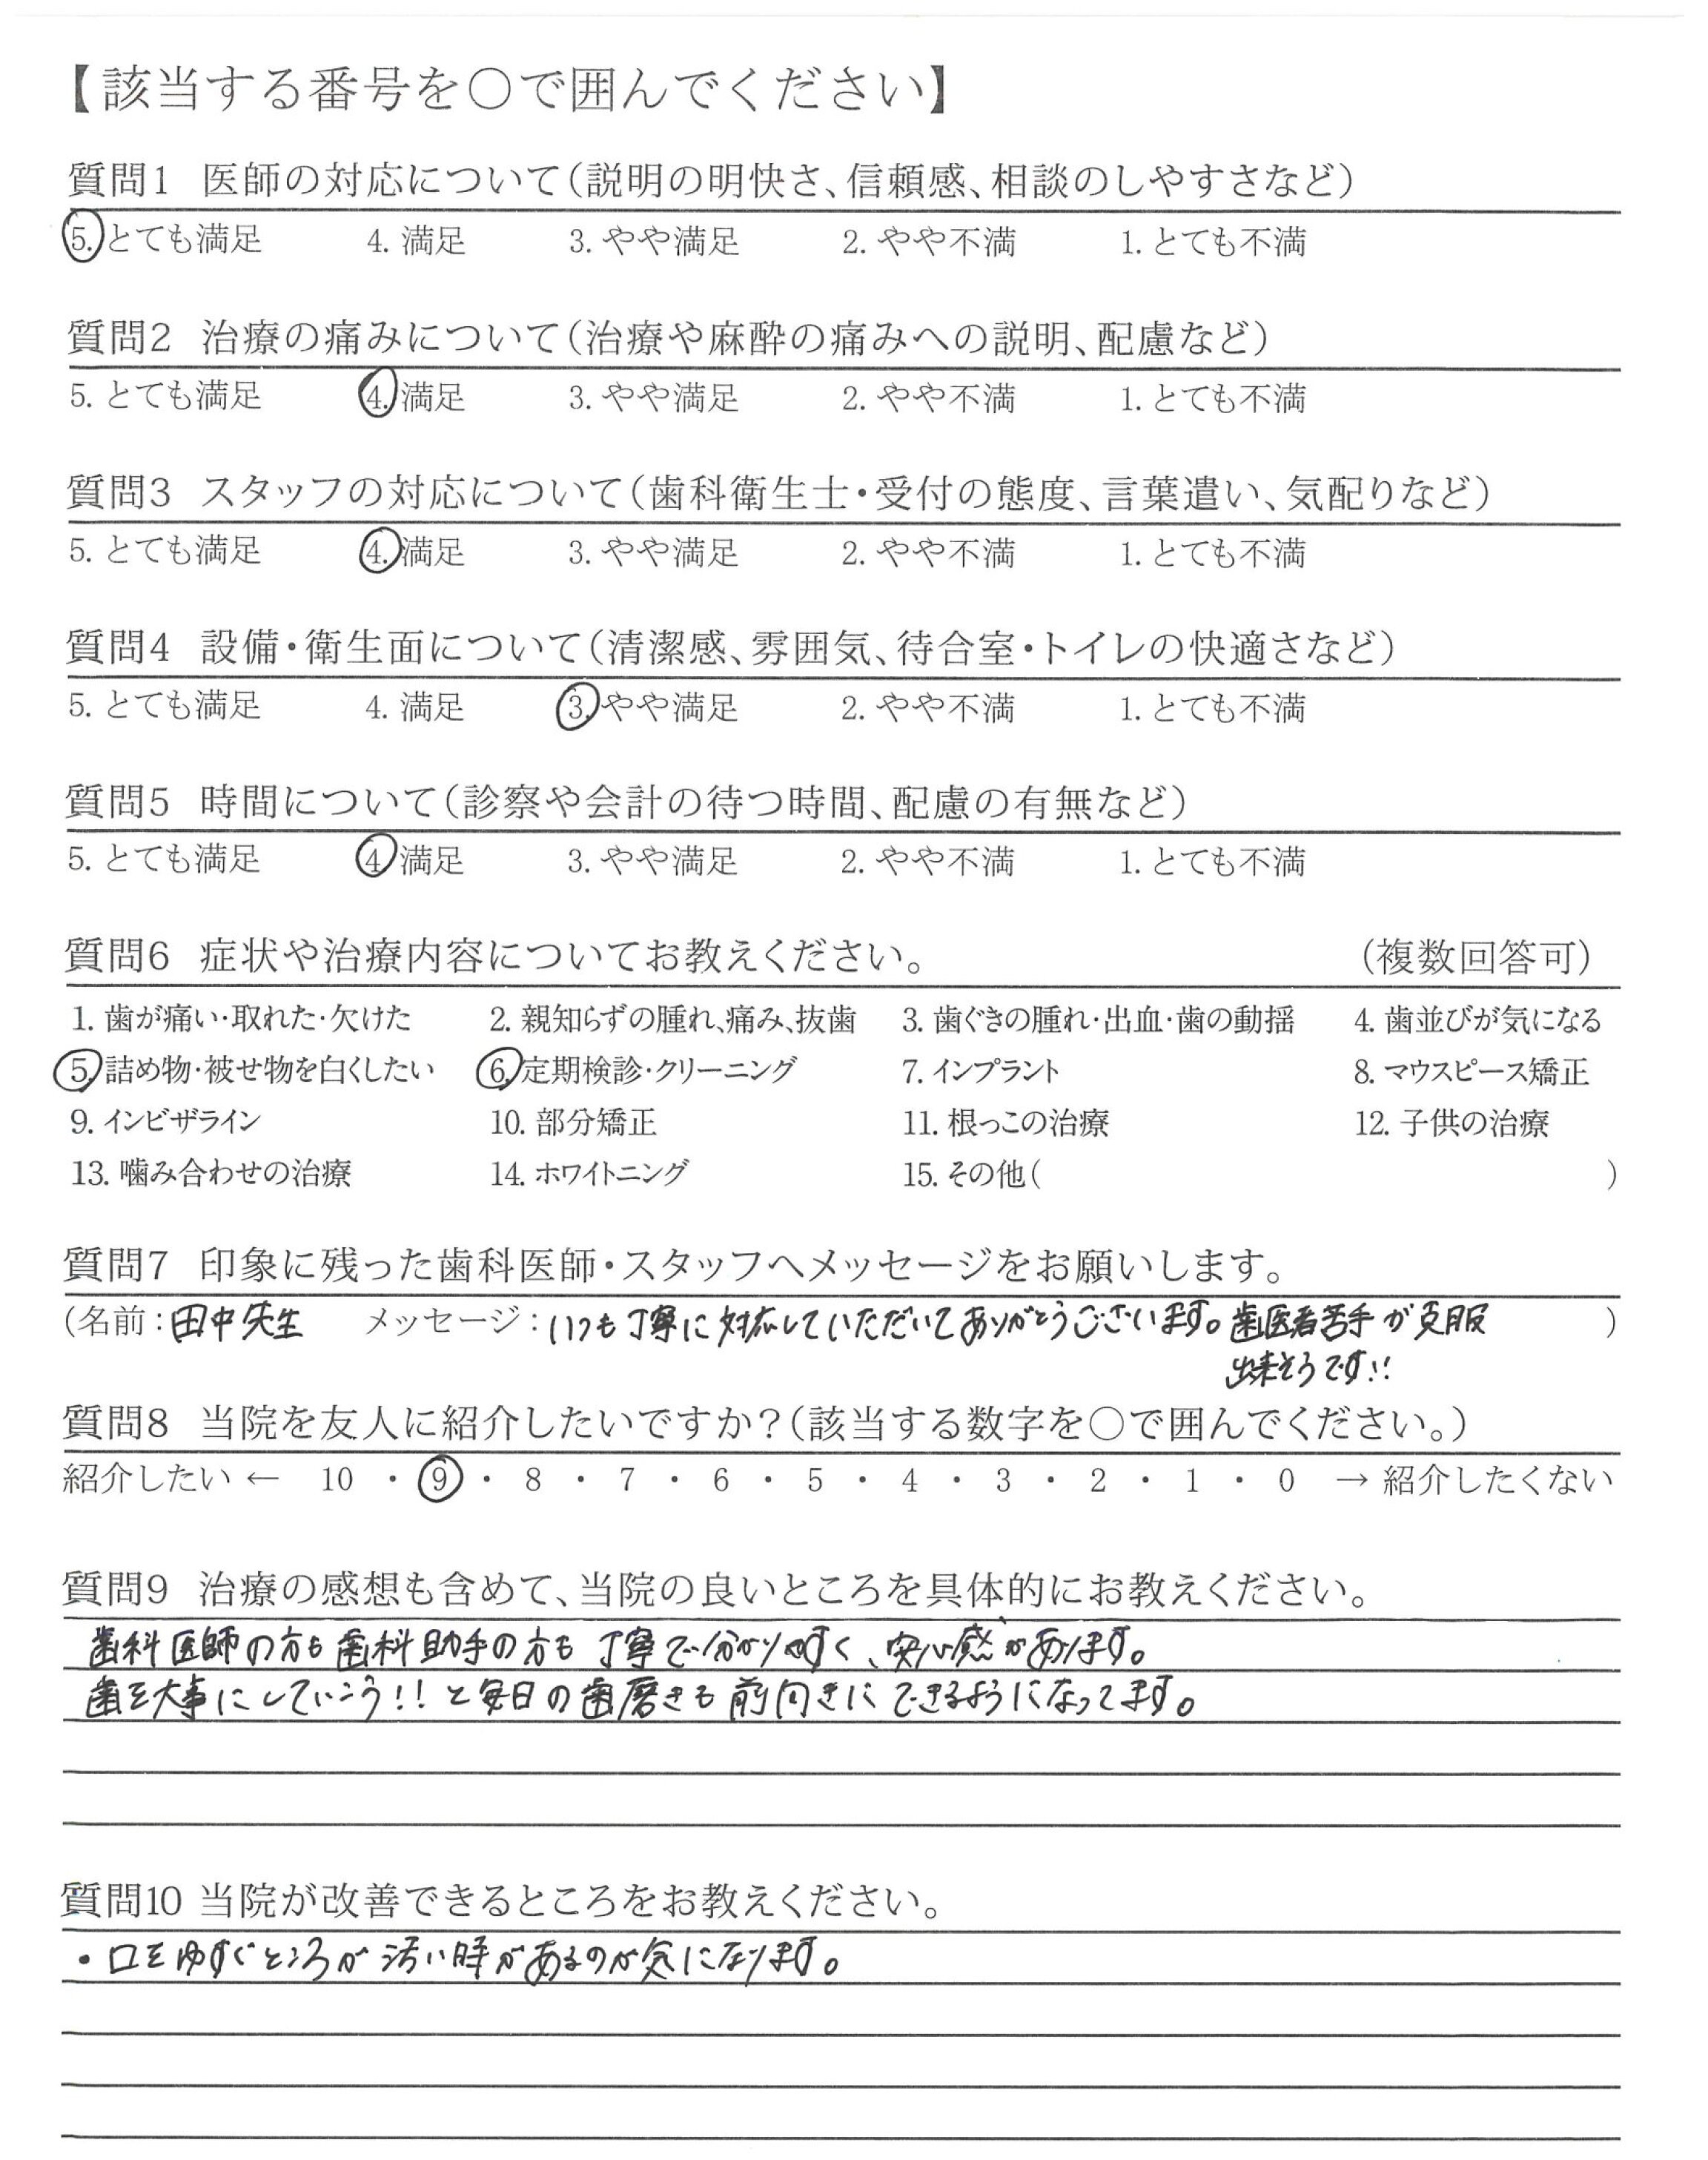 【該当する番号を〇で囲んでください】
質問1 医師の対応について（説明の明快さ、信頼感、相談のしやすさなど）
5. とても満足 4. 満足 3. やや満足 2. やや不満 1. とても不満
質問2 治療の痛みについて（治療や麻酔の痛みへの説明、配慮など）
5. とても満足 4. 満足 3. やや満足 2. やや不満 1. とても不満
質問3 スタッフの対応について（歯科衛生士・受付の態度、言葉遣い、気配りなど）
5. とても満足 4. 満足 3. やや満足 2. やや不満 1. とても不満
質問4 設備・衛生面について（清潔感、雰囲気、待合室・トイレの快適さなど）
5. とても満足 4. 満足 3. やや満足 2. やや不満 1. とても不満
質問5 時間について（診察や会計の待つ時間、配慮の有無など）
5. とても満足 4. 満足 3. やや満足 2. やや不満 1. とても不満
質問6 症状や治療内容についてお教えください。 （複数回答可）
1. 歯が痛い・取れた・欠けた 2. 親知らずの腫れ、痛み、抜歯 3. 歯ぐきの腫れ・出血・歯の動揺 4. 歯並びが気になる
5. 詰め物・被せ物を白くしたい 6. 定期検診・クリーニング 7. インプラント 8. マウスピース矯正
9. インビザライン 10. 部分矯正 11. 根っこの治療 12. 子供の治療
13. 噛み合わせの治療 14. ホワイトニング 15. その他（ ）
質問7 印象に残った歯科医師・スタッフへメッセージをお願いします。
（名前：田中先生 メッセージ：いつも丁寧に対応していただいてありがとうございます。歯医者苦手が克服 ）
出来そうです!!
質問8 当院を友人に紹介したいですか？（該当する数字を〇で囲んでください。）
紹介したい ← 10 ・ 9 ・ 8 ・ 7 ・ 6 ・ 5 ・ 4 ・ 3 ・ 2 ・ 1 ・ 0 → 紹介したくない
質問9 治療の感想も含めて、当院の良いところを具体的にお教えください。
歯科医師の方も歯科助手の方も丁寧で分かりやすく、安心感があります。
歯を大事にしていこう!!と毎日の歯磨きも前向きにできるようになってます。
質問10 当院が改善できるところをお教えください。
・口をゆすぐところが汚い時があるのが気になります。